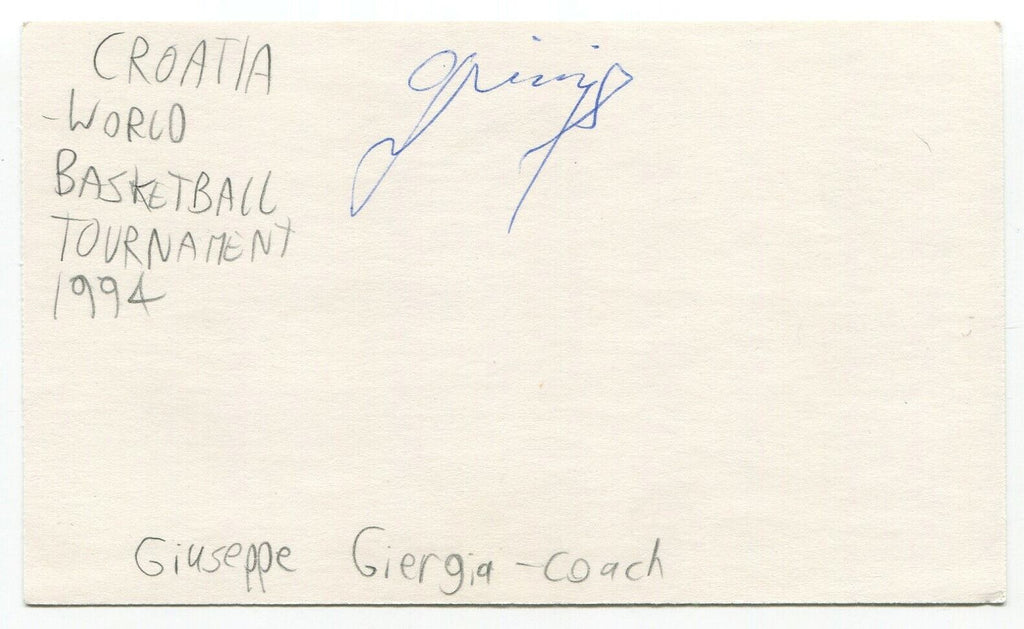 CROATIA
-WORLD
BASKETBALL
TOURNAMENT
1994
Giuseppe Giergia -coach